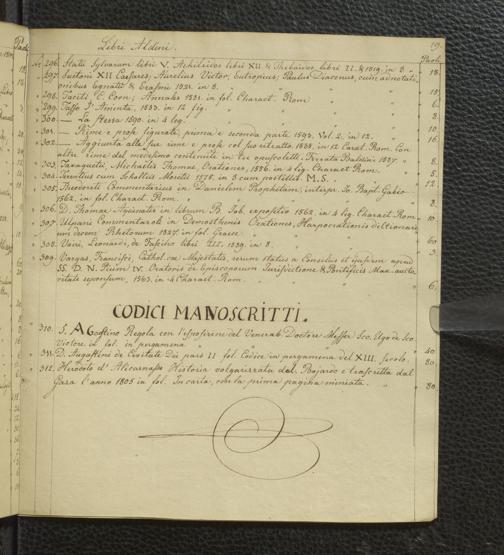 Libri Aldini. 19.
Paoli
N.º 296. Statii Sylvarum libri V. Achileidos libri XII & Thibaidos, libri II. & 1519. in 8. 18.
297. Suetonii XII Caesares; Aurelius Victor; Eutropius; Paulus Diaconus, cum adnotati
onibus Egnatii & Erasmi 1521. in 8. 15
298. Taciti C. Corn; Annales 1581. in fol. Charact. Rom 6
299. Tasso l'Aminta, 1583. in 12 fig. 8.
300. — La stessa 1590. in 4 leg. 10
301. — Rime e prose figurate, prima e seconda parte 1583. Vol. 2. in 12. 16
302. — Aggiunta alle sue rime e prose col suo ritratto, 1585. in 12 Carat. Rom Con
altre rime del medesimo contenute in tre opuscoletti. Privata Baldini 1587 8.
303. Taxaquetii, Michaelis Thomae, Orationes, 1556. in 4 lig. Charact Rom. 5.
304. Terentius cum Scholiis Moretii 1575. in 8 cum postillis M.S. 12
305. Theodoreti Commentarius in Danielem Prophetam, interpr. Jo. Bapt. Gabio
1562. in fol. Charact. Rom. 8
306. D. Thomae Aquinatis in librum B. Job. expositio 1562. in 4 lig. Charact Rom. 10
307. Ulpiani Commentaroli in Demosthenis Orationes, Harpocrationis dictionari
um decem Rhetorum 1527. in fol. Graece 60
308. Vairi, Leonardi, de Fascino libri III. 1589. in 8. 3
309. Vargas, Francisci, Cathol. cae Majestatis, rerum status a Consiliis et ipsarum apud
SS. D. N. Pium IV. Oratoris de Episcoporum Jurisdictione & Pontificis Max. aucto
ritate responsum, 1563. in 4 Charact. Rom. 6
CODICI MANOSCRITTI.
310. S. Agostino Regola con l'esposizione del Venerab. Doctore Messer Sco. Ugo de Sco.
Victore in fol. in pergamena 40
311. D. Augustini de Civitate Dei pars II fol. Codice in pergamena del XIII. secolo. 80
312. Herodolo d' Alicarnasso Historia volgarizzata dal Bojardo e trascritta dal
Gaza l'anno 1505 in fol. In carta, con la prima pagina miniata. 80.